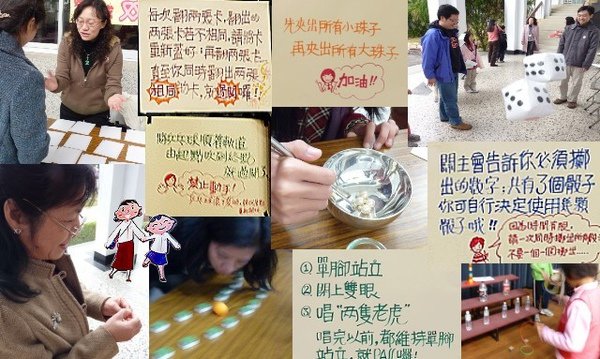 每次翻兩張卡,翻出的
兩張卡若不相同,請將卡
重新蓋好,再翻兩張卡
直至你同時翻出兩張
相同的卡,就過關囉!
先夾出所有小珠子
再夾出所有大珠子
加油!!
將乒乓球順著軌道
由起點吹到終點
就過關了
禁止動手!
關主會告訴你必須擲
出的數字,共有3個骰子
你可自行決定使用幾顆
骰子哦!!
因為時間有限,
請一次同時擲出所有骰子
不要一個一個擲出……
① 單腳站立
② 閉上雙眼
③ 唱"兩隻老虎"
唱完以前,都維持單腳
站立,就PASS囉!